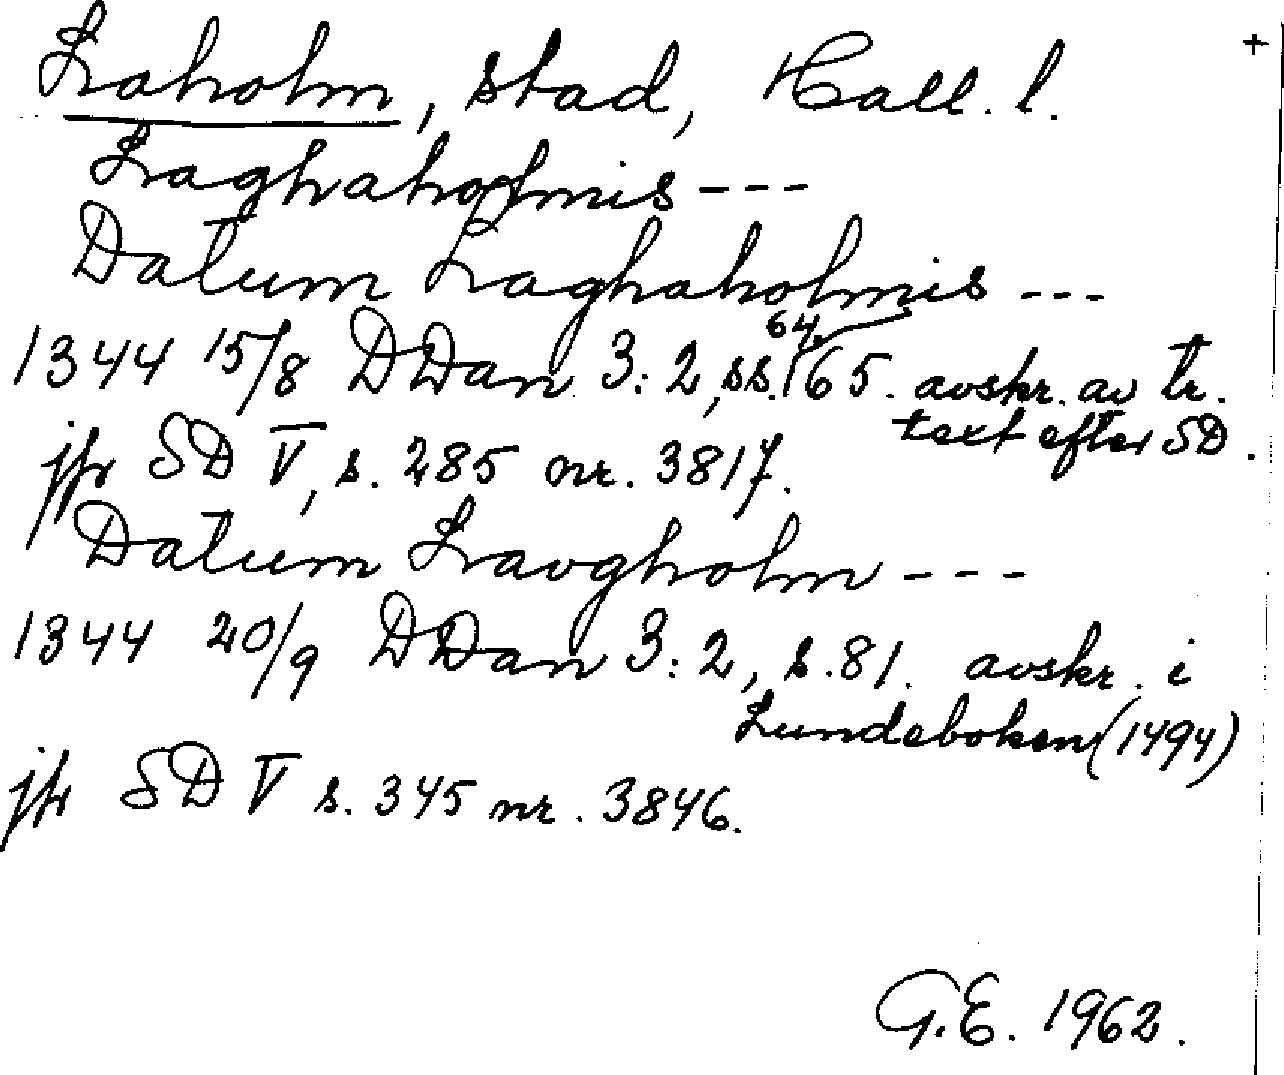 Laholm, stad, Hall. l. +
Laghaholmis ---
Datum Laghaholmis ---
1344 15/8 DDan 3:2, ss. 64, 65. avskr. av tr.
text efter SD.
jfr SD V, s. 285 nr. 3817.
Datum Lavgholm ---
1344 20/9 DDan 3:2, s. 81. avskr. i
Lundeboken (1494)
jfr SD V s. 345 nr. 3846.
G.E. 1962.